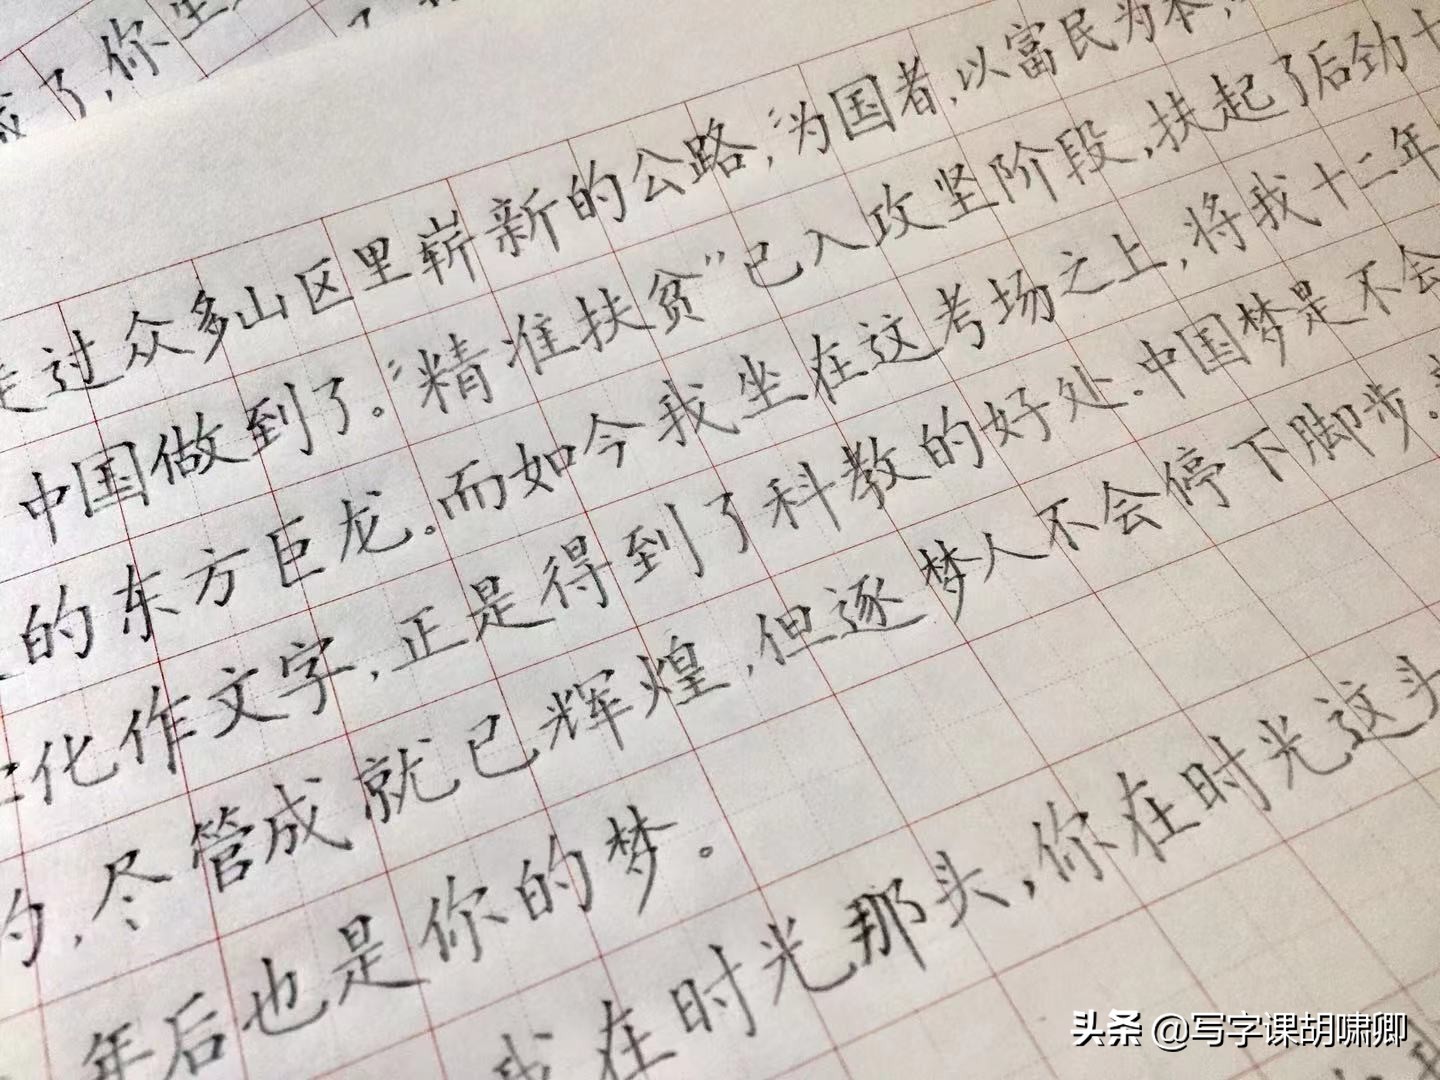 了,你生
走过众多山区里崭新的公路,“为国者,以富民为本,
中国做到了。“精准扶贫”已入攻坚阶段,扶起了后劲十
的东方巨龙。而如今我坐在这考场之上,将我十二年
化作文字,正是得到了科教的好处.中国梦是不会
的,尽管成就已辉煌,但逐梦人不会停下脚步.
年后也是你的梦。
我在时光那头,你在时光这头
头条 @写字课胡啸卿